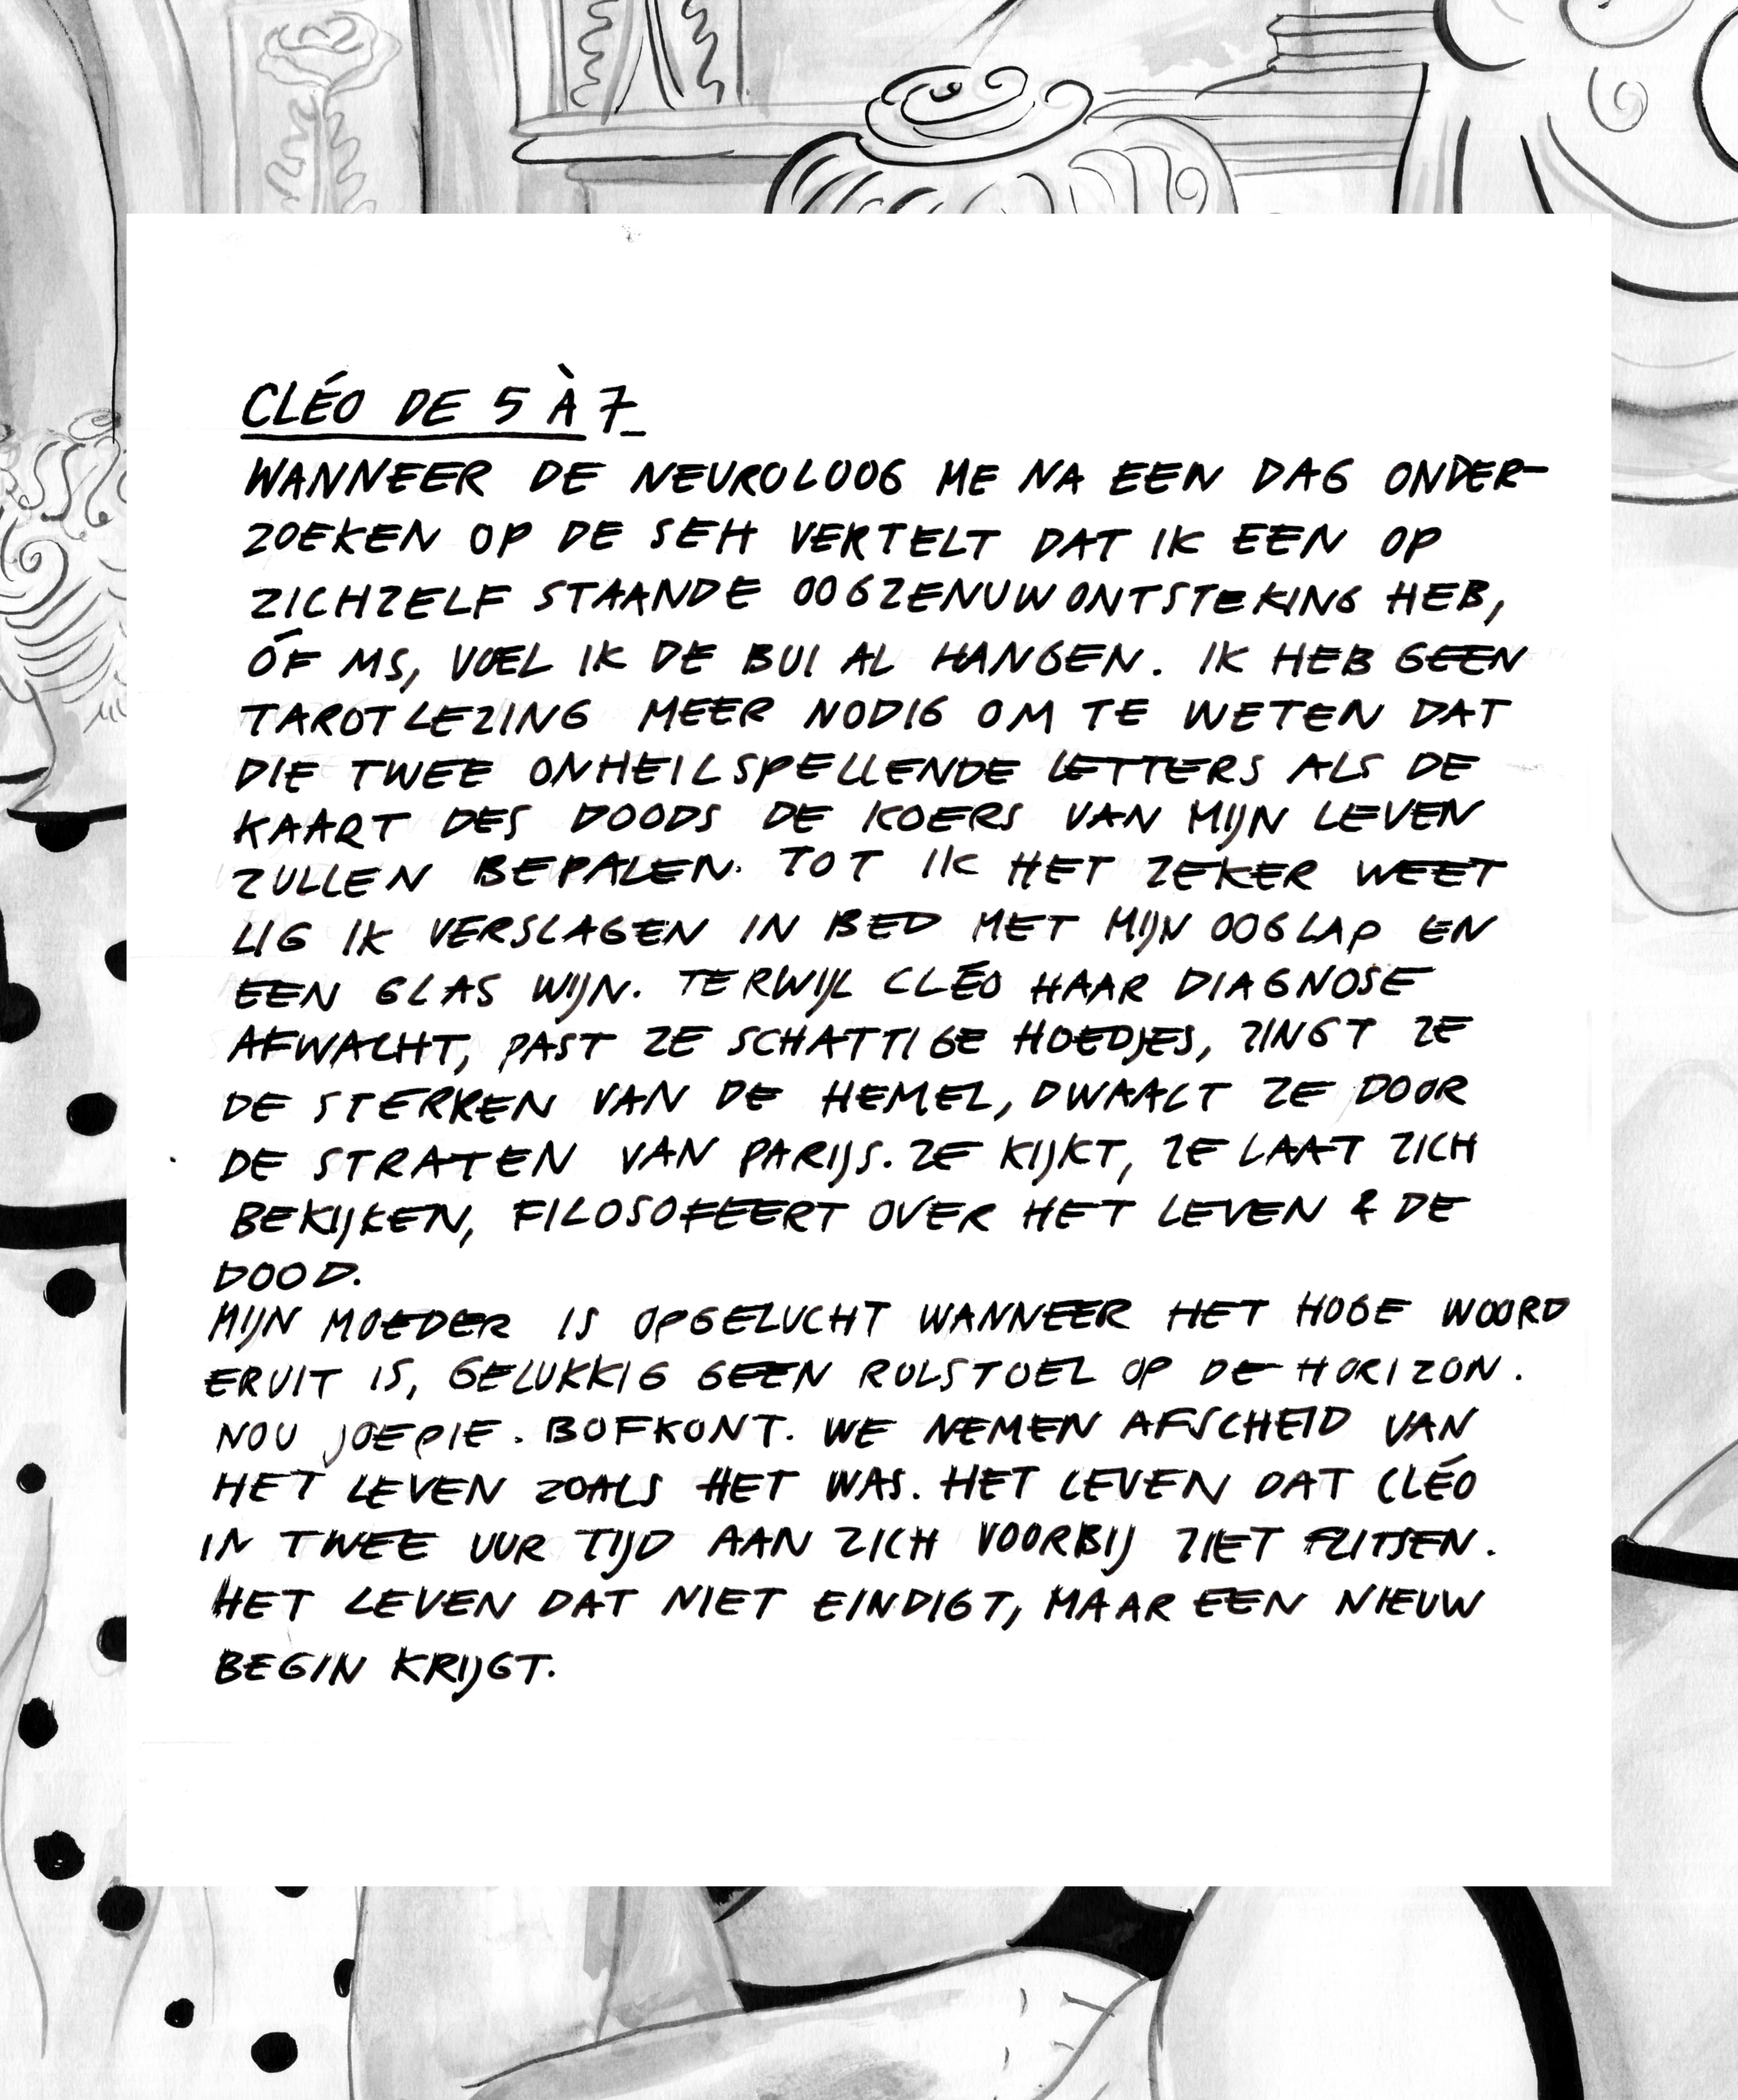 CLÉO DE 5 À 7
WANNEER DE NEUROLOOG ME NA EEN DAG ONDER-
ZOEKEN OP DE SEH VERTELT DAT IK EEN OP
ZICHZELF STAANDE OOGZENUWONTSTEKING HEB,
ÓF MS, VOEL IK DE BUI AL HANGEN. IK HEB GEEN
TAROTLEZING MEER NODIG OM TE WETEN DAT
DIE TWEE ONHEILSPELLENDE LETTERS ALS DE
KAART DES DOODS DE KOERS VAN MIJN LEVEN
ZULLEN BEPALEN. TOT IK HET ZEKER WEET
LIG IK VERSLAGEN IN BED MET MIJN OOGLAP EN
EEN GLAS WIJN. TERWIJL CLÉO HAAR DIAGNOSE
AFWACHT, PAST ZE SCHATTIGE HOEDJES, ZINGT ZE
DE STERREN VAN DE HEMEL, DWAALT ZE DOOR
DE STRATEN VAN PARIJS. ZE KIJKT, ZE LAAT ZICH
BEKIJKEN, FILOSOFEERT OVER HET LEVEN & DE
DOOD.
MIJN MOEDER IS OPGELUCHT WANNEER HET HOGE WOORD
ERUIT IS, GELUKKIG GEEN ROLSTOEL OP DE HORIZON.
NOU JOEPIE. BOFKONT. WE NEMEN AFSCHEID VAN
HET LEVEN ZOALS HET WAS. HET LEVEN DAT CLÉO
IN TWEE UUR TIJD AAN ZICH VOORBIJ ZIET FLITSEN.
HET LEVEN DAT NIET EINDIGT, MAAR EEN NIEUW
BEGIN KRIJGT.